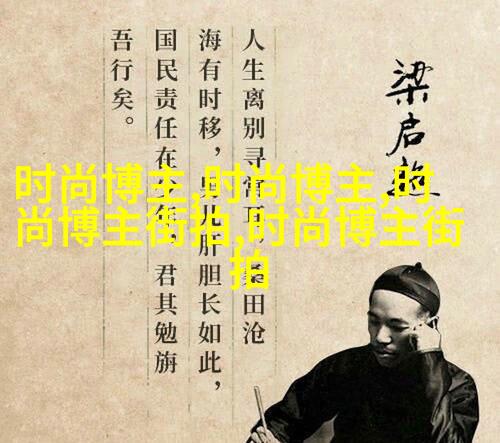 梁启超
人生离别寻常事，桑田沧
海有时移，男儿肝胆长如此，
国民责任在少年，君其勉旃
吾行矣。
时尚博主,时尚博主,时
尚博主街拍,时尚博主街
拍